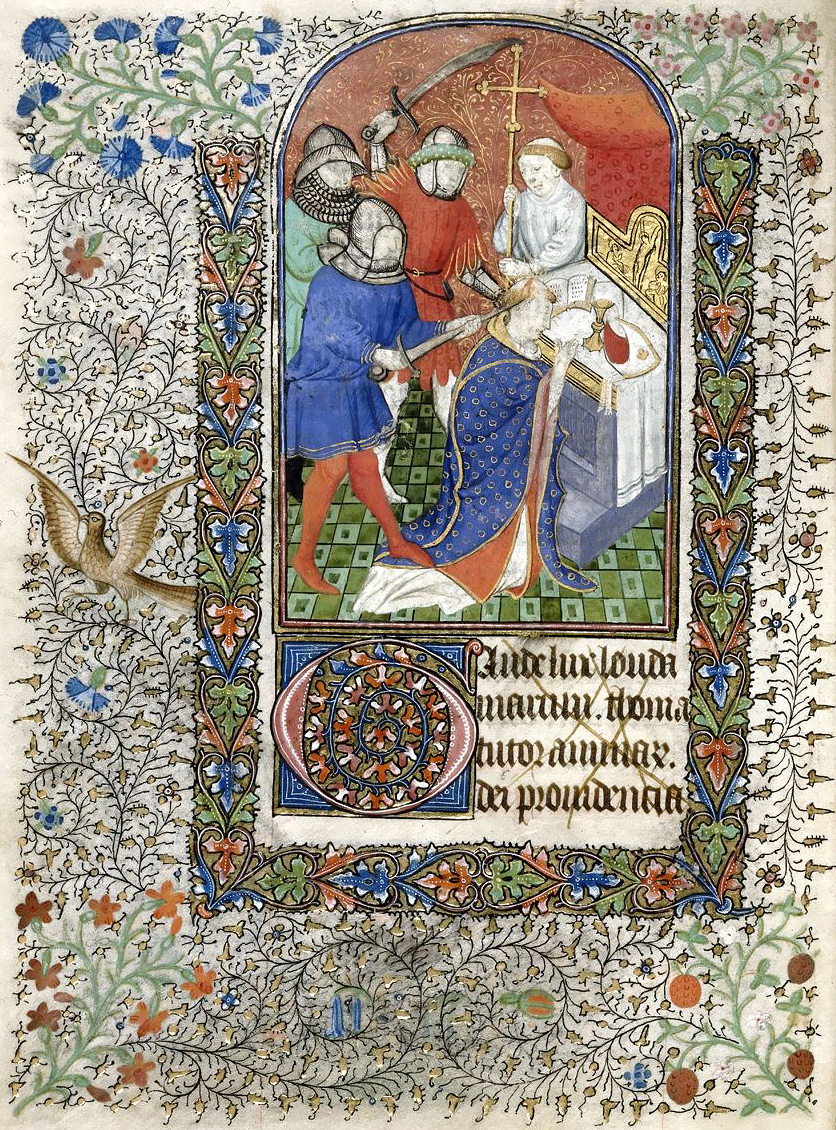 GAude lux londa
niarum. thoma
tutor animaꝝ.
dei prouidentia